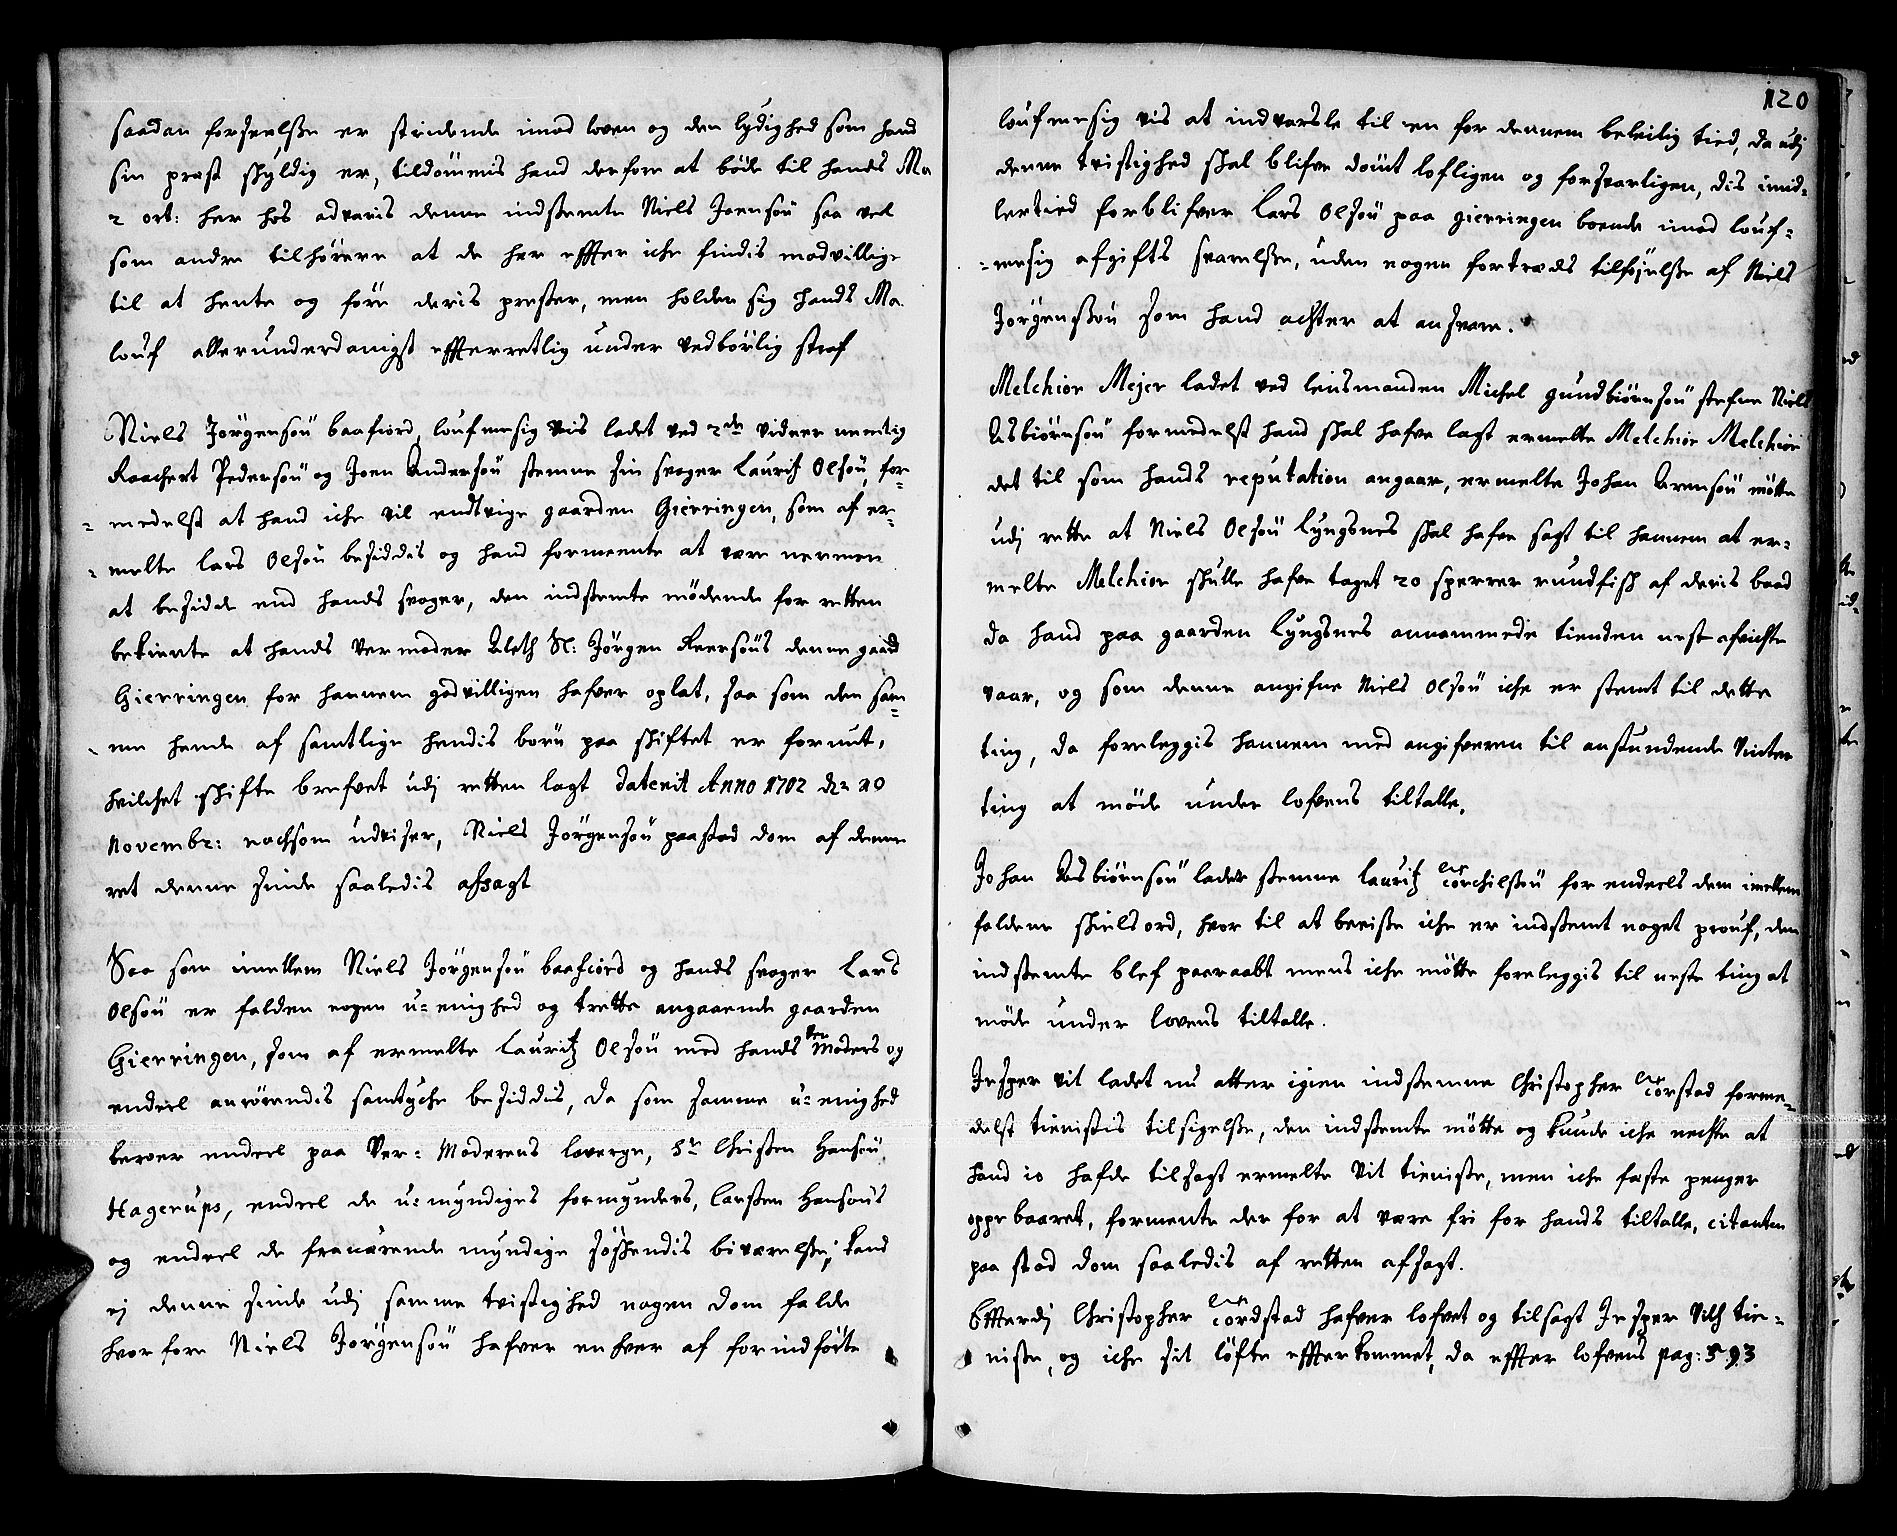 saadan forseelsse er stridende imod loven og den lydighed som hand
sin præst skyldig er, tildömmis hand derfore at böde til hands Ma
2 ort: her hos advaris denne indstemte Niels Joensön saa vel
som andre tilhörere at de her effter iche findis modvillige
til at hente og före deris prester, men holden sig hands Ma.
louf allerunderdanigst effterretlig under vedbörlig straf
Niels Jörgensön baafiord, loufmesig viis ladet ved 2de vidner nemlig
Raachert Pedersön og Joen Andersön stemme sin svoger Lauritz Olsön, for-
= medelst at hand iche vil endtvige gaarden Gierringen, som af er-
= melte Lars Olsön besiddis og hand formeente at være nermer
at besidde end hands svoger, den indstemte mödende for retten
bekiente at hands Vermoder Aleth Sl: Jörgen Reersöns denne gaard
Gierringen for hannem godvilligen hafver oplat, saa som den sam-
me hende af samtlige hendis börn paa skiftet er forunt,
hvilchet skifte brefvet udj retten lagt daterit Anno 1702 d: 20
Novembr: nochsom udviser, Niels Jörgensön paastod dom af denne
ret denne sinde saaledis afsagt
Saa som imellem Niels Jörgensön baafiord og hands svoger Lars
Olsön er falden nogen u=enighed og trette angaaende gaarden
Gierringen, som af ermelte Lauritz Olsön med hands Ver Moders og
endeel anrörendis samtyche besiddis, da som samme u=enighed
beroer endeel paa Ver= Moderens laverge, Sr Christen Hansön
Hagerups, endeel de u=myndiges formynders, Carsten Hansöns
og endeel de fraværende myndige sösskendis biværelsse, kand
ej denne sinde udj samme tvistighed nogen dom falde
hvorfore Niels Jörgensön hafver enhver af forindförte
120
loufmesig vis at indvarsle til en for dennem beleilig tied, da udj
denne tvistighed skal blifve dömt lofligen og forsvarligen, dis imid-
lertied forblifver Lars Olsön paa gierringen boende imod louf-
=mesig afgifts svarelsse, uden nogen fortræds tilföjelsse af Niels
Jörgenssön som hand achter at ansvare.
Melchior Mejer ladet ved lensmanden Michel gundbiörnsön stefne Niels
Asbiörnsön formedelst hand skal hafve lagt ermelte Melchior Melchior
det til som hands reputation angaar, ermelte Johan Arensön mötte
udj rette at Niels Olsön Lyngsnes skal hafve sagt til hannem at er-
melte Melchior skulle hafve taget 20 sperrer rundfisk af deris baad
da hand paa gaarden Lyngsnes annammede tienden nest afvichte
vaar, og som denne angifne Niels Olsön iche er stemt til dette
ting, da foreleggis hannem med angifveren til anstundende Vinter
ting at möde under lofvens tiltalle.
Johan Asbiörnsön lader stemme Lauritz Torchilssön for endeels dem imellem
faldene skielsord, hvor til at beviisse iche er indstemt noget prouf, den
indstemte blef paaraabt mens iche mötte foreleggis til neste ting at
möde under lovens tiltalle.
Jesper Vit ladet nu atter igien indstemme Christopher Torstad forme-
delst tienistis tilsigelsse, den indstemte mötte og kunde iche nechte at
hand io hafde tilsagt ermelte Vit tieniste, men iche fæste penger
oppebaaret, formente der for at være fri for hands tiltalle, citanten
paa stod dom saaledis af retten afsagt.
Effterdj Christopher Tordstad hafver lofvet og tilsagt Jesper Vith tie-
niste, og iche sit löfte effterkommet, da effter lofvens pag: 593